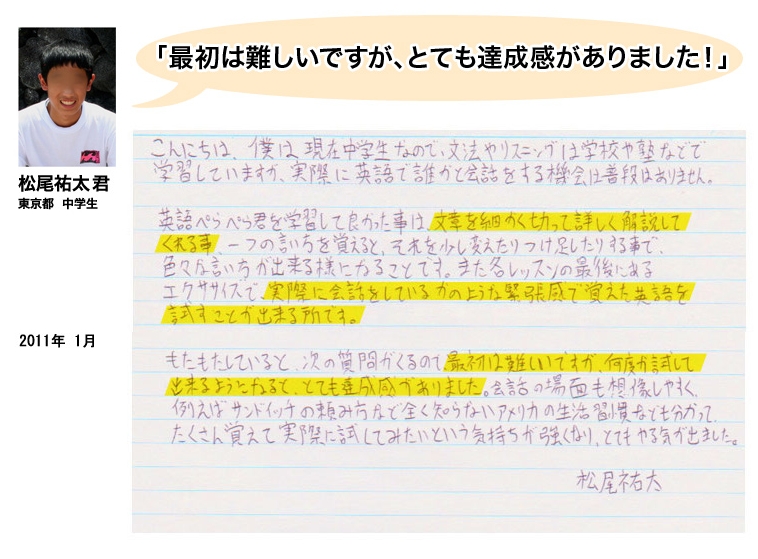 「最初は難しいですが、とても達成感がありました！」
松尾祐太 君
東京都　中学生
2011年 1月
こんにちは、僕は現在中学生なので、文法やリスニングは学校や塾などで
学習していますが、実際に英語で誰かと会話をする機会は普段はありません。
英語ぺらぺら君を学習して良かった事は、文章を細かく切って詳しく解説して
くれる事、一つの言い方を覚えると、それを少し変えたりつけ足したりする事で、
色々な言い方が出来る様になることです。また各レッスンの最後にある
エクササイズで、実際に会話をしているかのような緊張感で覚えた英語を
試すことが出来る所です。
もたもたしていると、次の質問がくるので、最初は難しいですが、何度か試して
出来るようになると、とても達成感がありました。会話の場面も想像しやすく、
例えばサンドイッチの頼み方など全く知らないアメリカの生活習慣なども分かって、
たくさん覚えて実際に試してみたいという気持ちが強くなり、とてもやる気が出ました。
松尾祐太